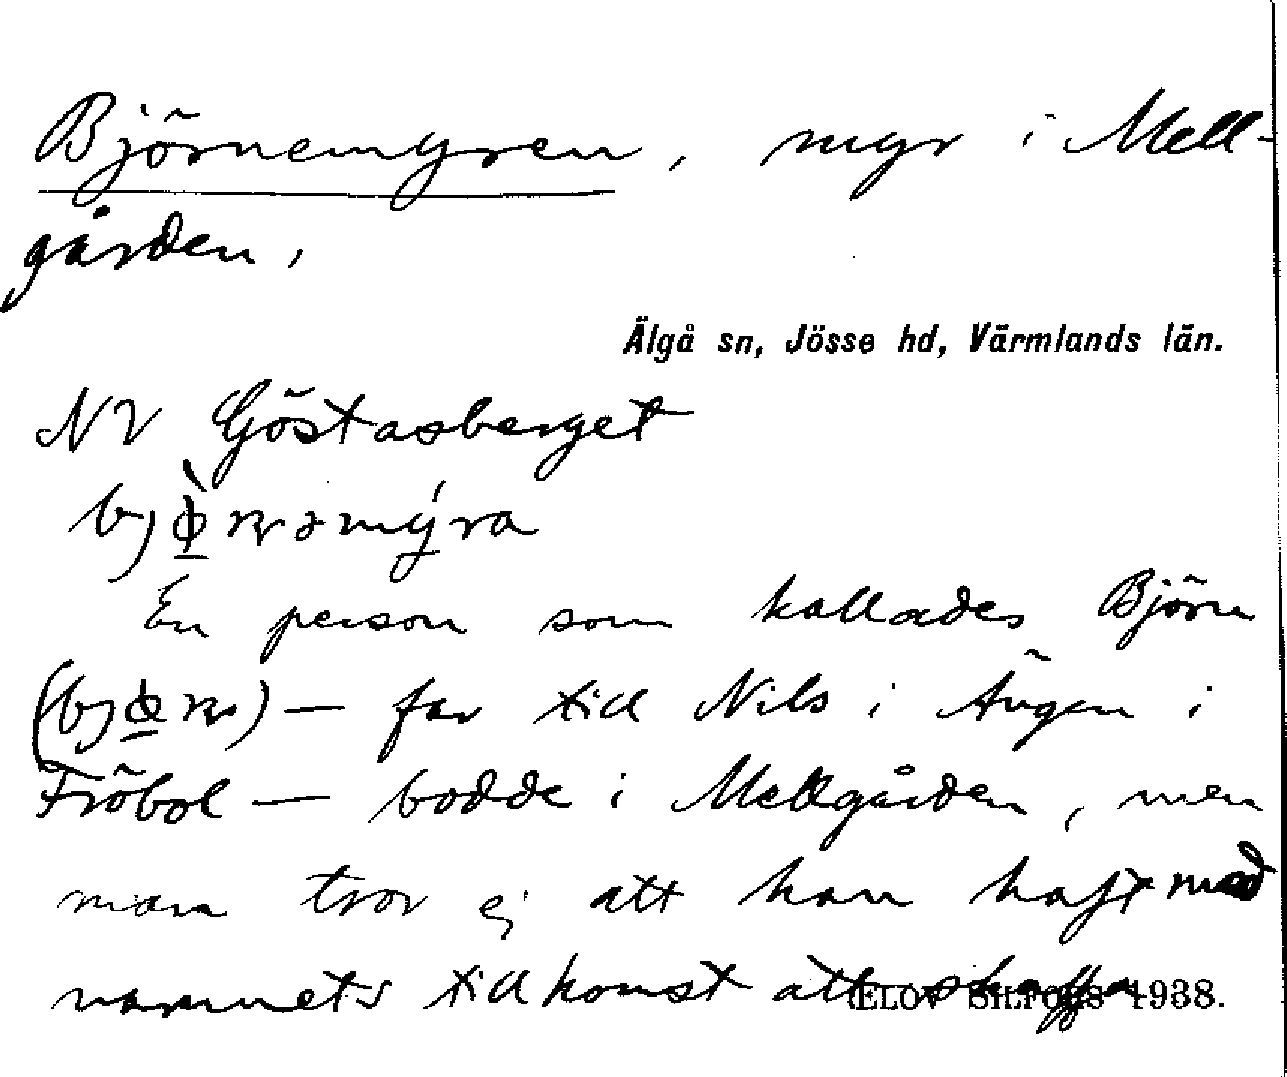 Björnemyren, myr i Mell-
gården,
Älgå sn, Jösse hd, Värmlands län.
NV Göstasberget
En person som kallades Björn
— far till Nils i Ängen i
Fröbol — bodde i Mellgården, men
man tror ej att han haft med
namnets tillkomst att skaffa
1938.